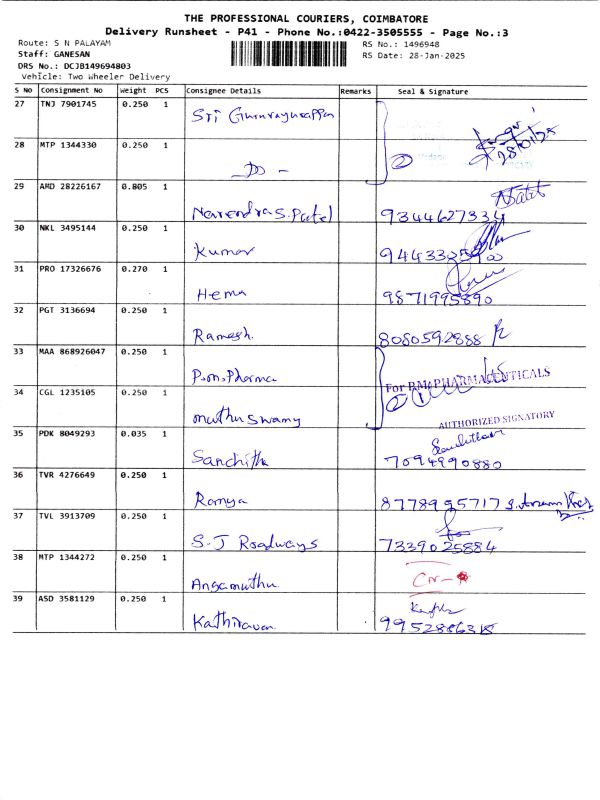 THE PROFESSIONAL COURIERS, COIMBATORE
Delivery Runsheet - P41 - Phone No.:0422-3505555 - Page No.:3
Route: S N PALAYAM
RS No.: 1496948
Staff: GANESAN
RS Date: 28-Jan-2025
DRS No.: DCJB149694803
Vehicle: Two Wheeler Delivery
S No Consignment No Weight PCS Consignee Details Remarks Seal & Signature
27 TNJ 7901745 0.250 1 Sri Gururayurappan
28/01/25
28 MTP 1344330 0.250 1 -DO- 2
29 AMD 28226167 0.805 1 Narendra S. Patel 9344627334
30 NKL 3495144 0.250 1 Kumar
31 PRO 17326676 0.270 1 Hema 9871995890
32 PGT 3136694 0.250 1 Ramesh. 8080592888
33 MAA 868926047 0.250 1 P.m. Pharma For P.M. PHARMACEUTICALS
34 CGL 1235105 0.250 1 muthu swamy 2 AUTHORIZED SIGNATORY
35 PDK 8049293 0.035 1 Sanchitha 7094990880
36 TVR 4276649 0.250 1 Ramya 8778995717
37 TVL 3913709 0.250 1 S.J Roadways 7339025884
38 MTP 1344272 0.250 1 Angamuthu
39 ASD 3581129 0.250 1 Kathiravan